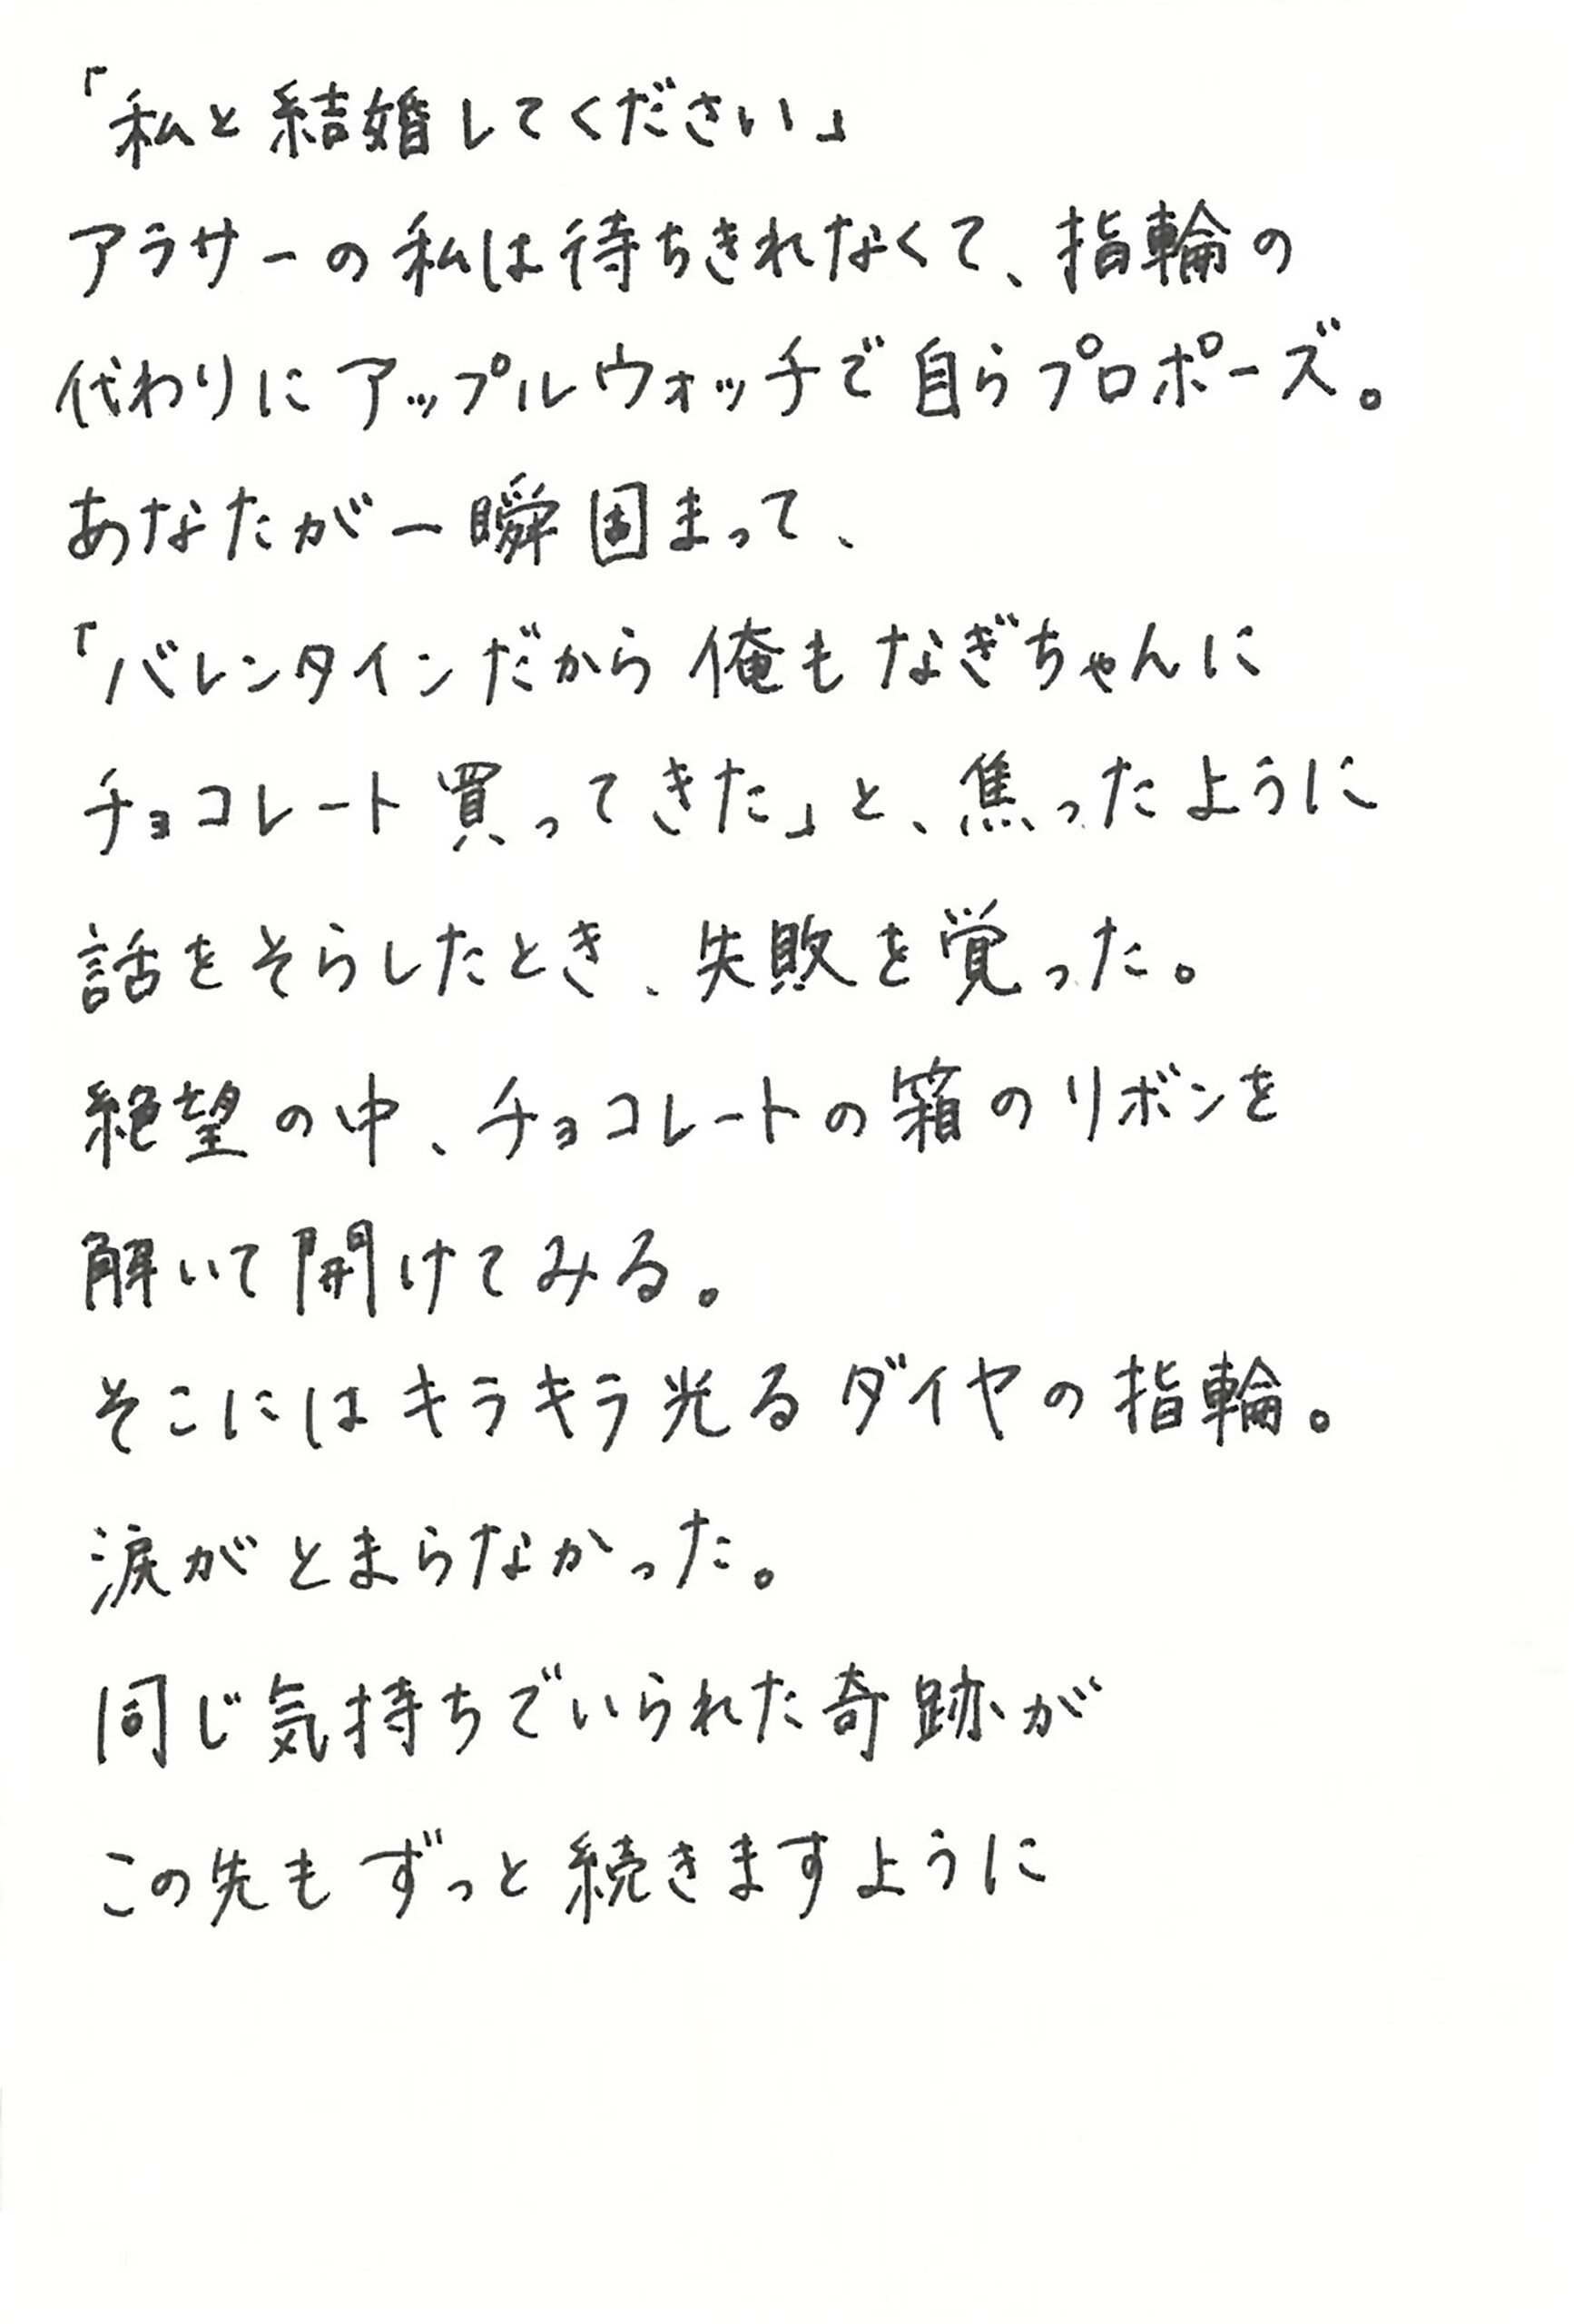 「私と結婚してください」
アラサーの私は待ちきれなくて、指輪の
代わりにアップルウォッチで自らプロポーズ。
あなたが一瞬固まって、
「バレンタインだから俺もなぎちゃんに
チョコレート買ってきた」と、焦ったように
話をそらしたとき、失敗を覚った。
絶望の中、チョコレートの箱のリボンを
解いて開けてみる。
そこにはキラキラ光るダイヤの指輪。
涙がとまらなかった。
同じ気持ちでいられた奇跡が
この先もずっと続きますように